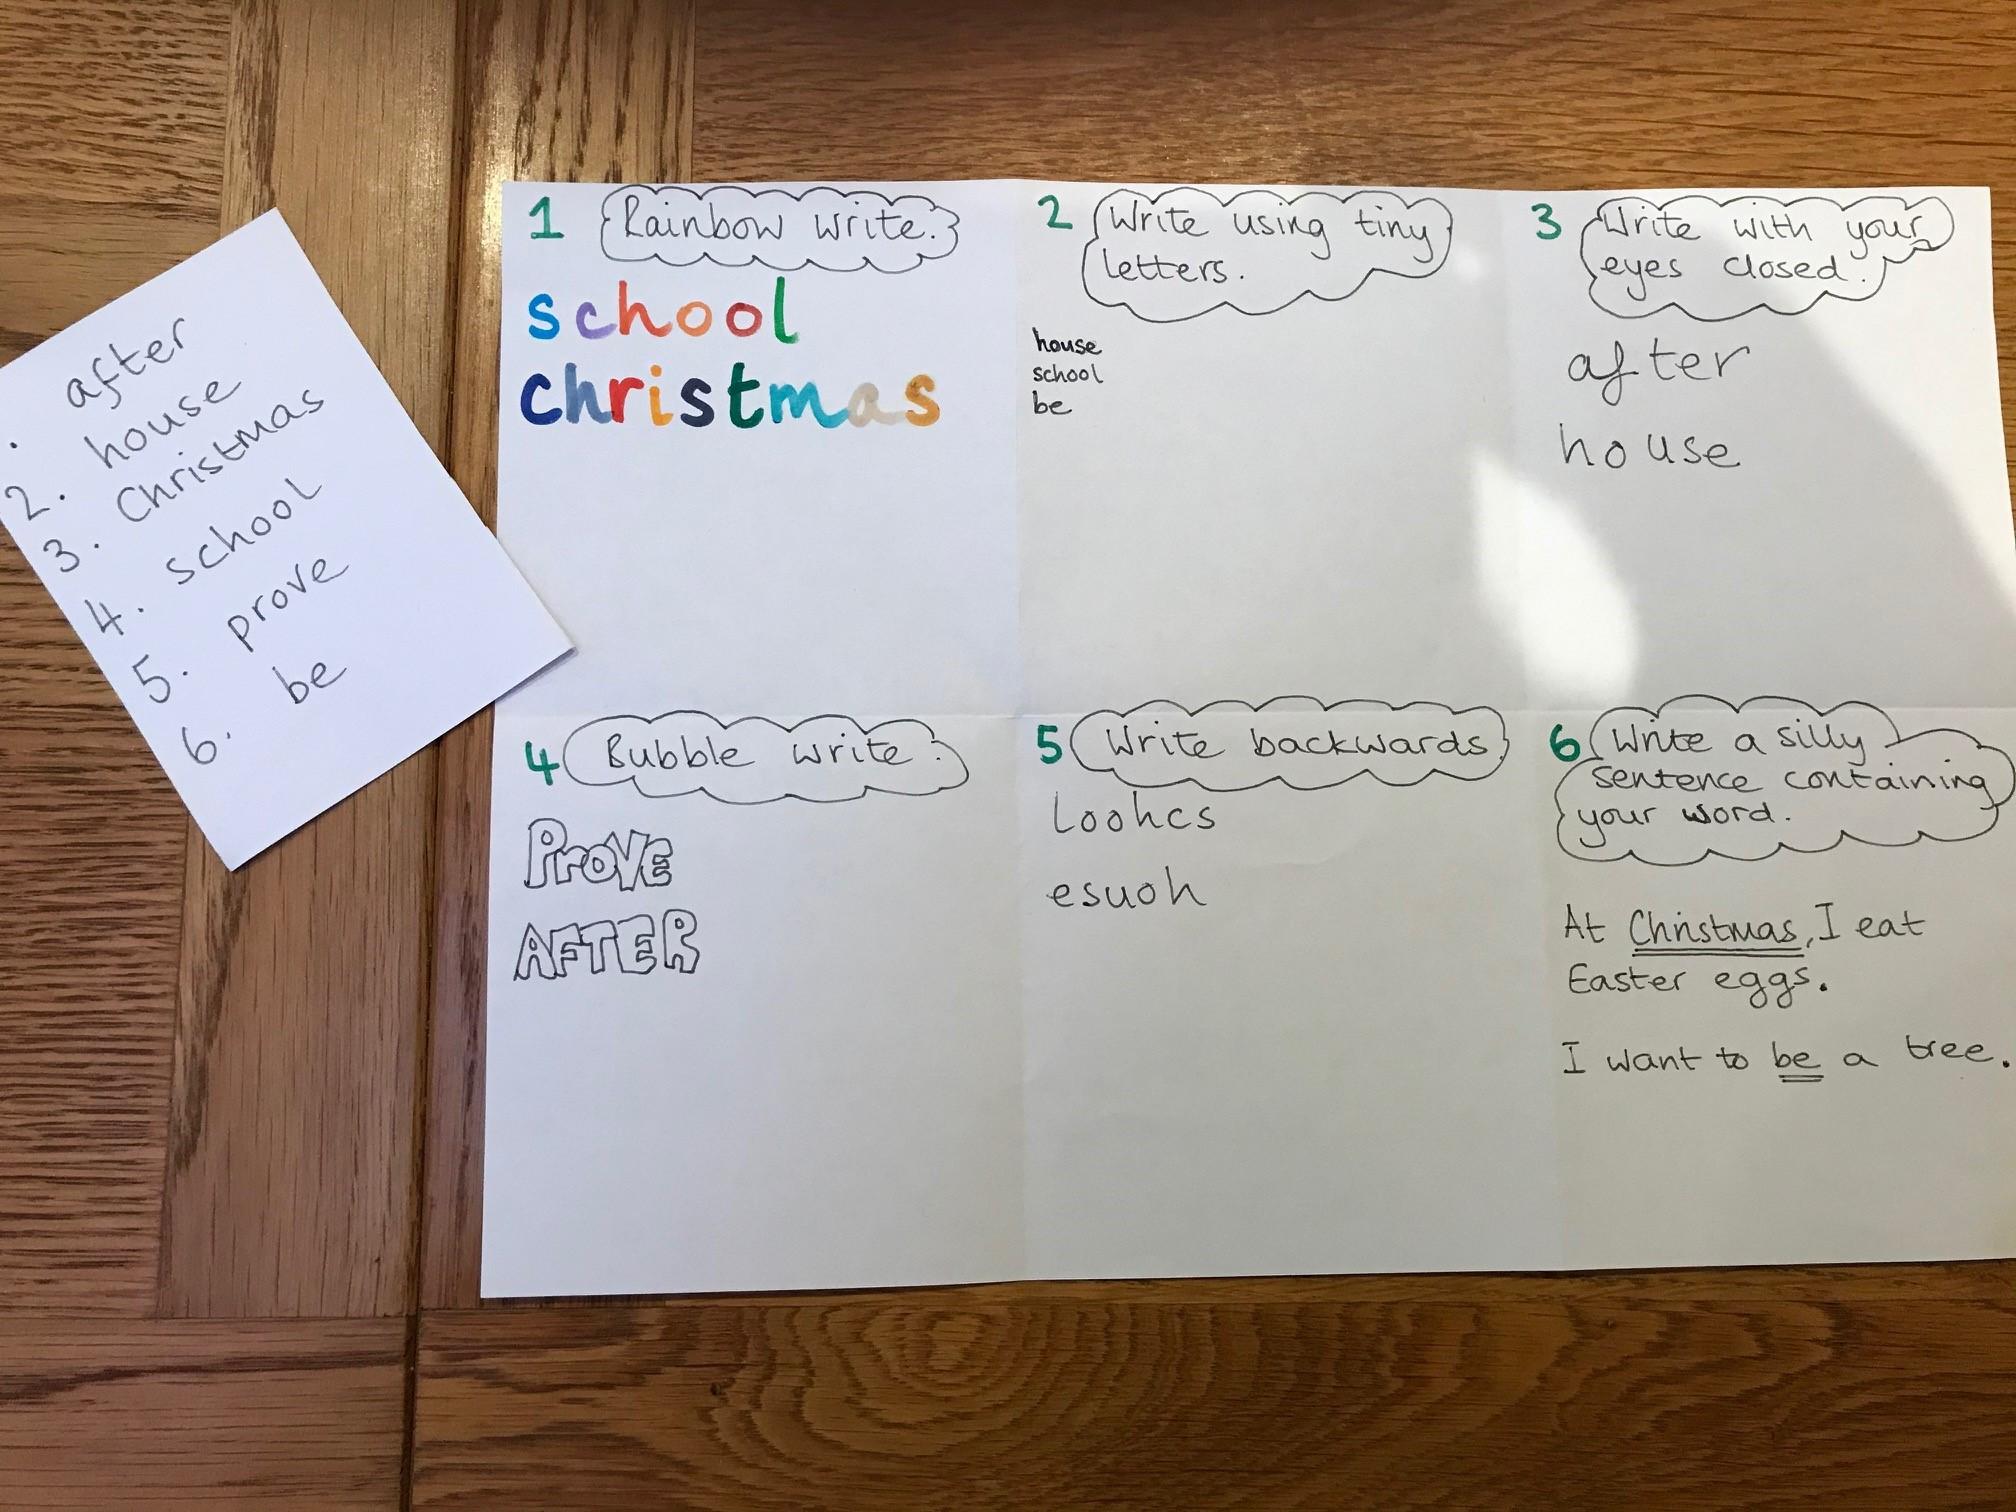 . after
2. house
3. Christmas
4. school
5. prove
6. be
1 Rainbow write.
school
christmas
2 Write using tiny
letters.
house
school
be
3 Write with your
eyes closed.
after
house
4 Bubble write.
PrOVE
AFTER
5 Write backwards.
loohcs
esuoh
6 Write a silly
sentence containing
your word.
At Christmas, I eat
Easter eggs.
I want to be a tree.